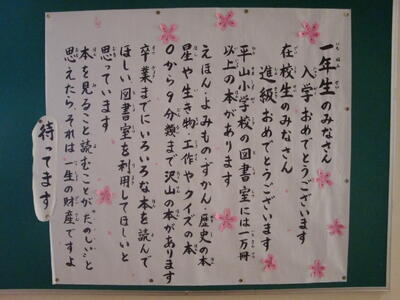 一年生のみなさん
入学おめでとうございます
在校生のみなさん
進級おめでとうございます
平山小学校の図書室には一万冊
以上の本があります
えほん・よみもの・ずかん・歴史の本
星や生き物・工作やクイズの本
0から9分類まで沢山の本があります
卒業までにいろいろな本を読んで
ほしい、図書室を利用してほしいと
思っています
本を見ること読むことが「たのしい」と
思えたら、それは一生の財産ですよ
待ってます。